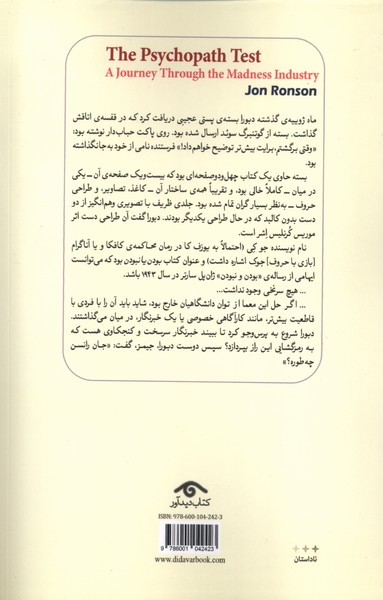 The Psychopath Test
A Journey Through the Madness Industry
Jon Ronson
ماه ژوییه‌ی گذشته دبورا بسته‌ی پستی عجیبی دریافت کرد که در قفسه‌ی اتاقش
گذاشت. بسته از گوتنبرگ سوئد ارسال شده بود. روی پاکت حباب‌دار نوشته بود:
«وقتی برگشتم، برایت بیش‌تر توضیح خواهم داد!» فرستنده نامی از خود به جا نگذاشته
بود.
بسته حاوی یک کتاب چهل‌ودوصفحه‌ای بود که بیست‌ویک صفحه‌ی آن ـ یکی
در میان ـ کاملاً خالی بود، و تقریباً همه‌ی ساختار آن ـ کاغذ، تصاویر، و طراحی
حروف ـ به‌نظر بسیار گران تمام شده بود. جلدی ظریف با تصویری وهم‌انگیز از دو
دست بدون کالبد که در حال طراحی یکدیگر بودند. دبورا گفت آن طراحی دست اثر
موریس کُرنلیس اِشر است.
نام نویسنده جو کِی (احتمالاً به یوزف کا در رمان محاکمه‌ی کافکا و یا آناگرام
[بازی با حروف] جوک اشاره داشت) و عنوان کتاب بودن یا نبودن بود که می‌توانست
ایهامی از رساله‌ی «بودن و نبودن» ژان‌پل سارتر در سال ۱۹۴۳ باشد.
... هیچ سرنخی وجود نداشت...
... اگر حل این معما از توان دانشگاهیان خارج بود، شاید باید آن را با فردی با
قاطعیت بیش‌تر، مانند کارآگاهی خصوصی یا یک خبرنگار، در میان می‌گذاشتند.
دبورا شروع به پرس‌وجو کرد تا ببیند خبرنگار سرسخت و کنجکاوی هست که
به رمزگشایی این راز بپردازد؟ سپس دوست دبورا، جیمز، گفت: «جان رانسن
چه‌طوره؟»
کتاب دیدآور
ISBN: 978-600-104-242-3
9 786001 042423
www.didavarbook.com
ناداستان